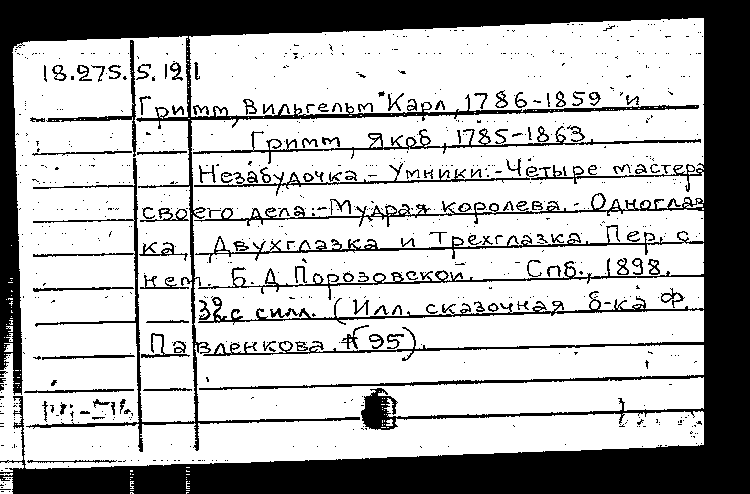 18.275.5.121
Гримм, Вильгельм Карл, 1786-1859 и
Гримм, Якоб, 1785-1863.
Незабудочка.- Умники.-Четыре мастера
своего дела.-Мудрая королева.- Одноглаз
ка, Двухглазка и Трехглазка. Пер. с
нем. Б.Д. Порозовской. Спб., 1898.
32 с силл. (Илл. сказочная б-ка Ф.
Павленкова. (95).